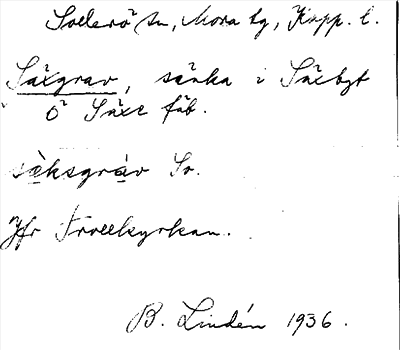 Sollerö sn, Mora tg, Kopp. l.
Säxgrav, sänka i Säxbyt
Ö Säxe fäb.
sàksgràv So.
Jfr Trollkyrkan.
B. Lindén 1936.